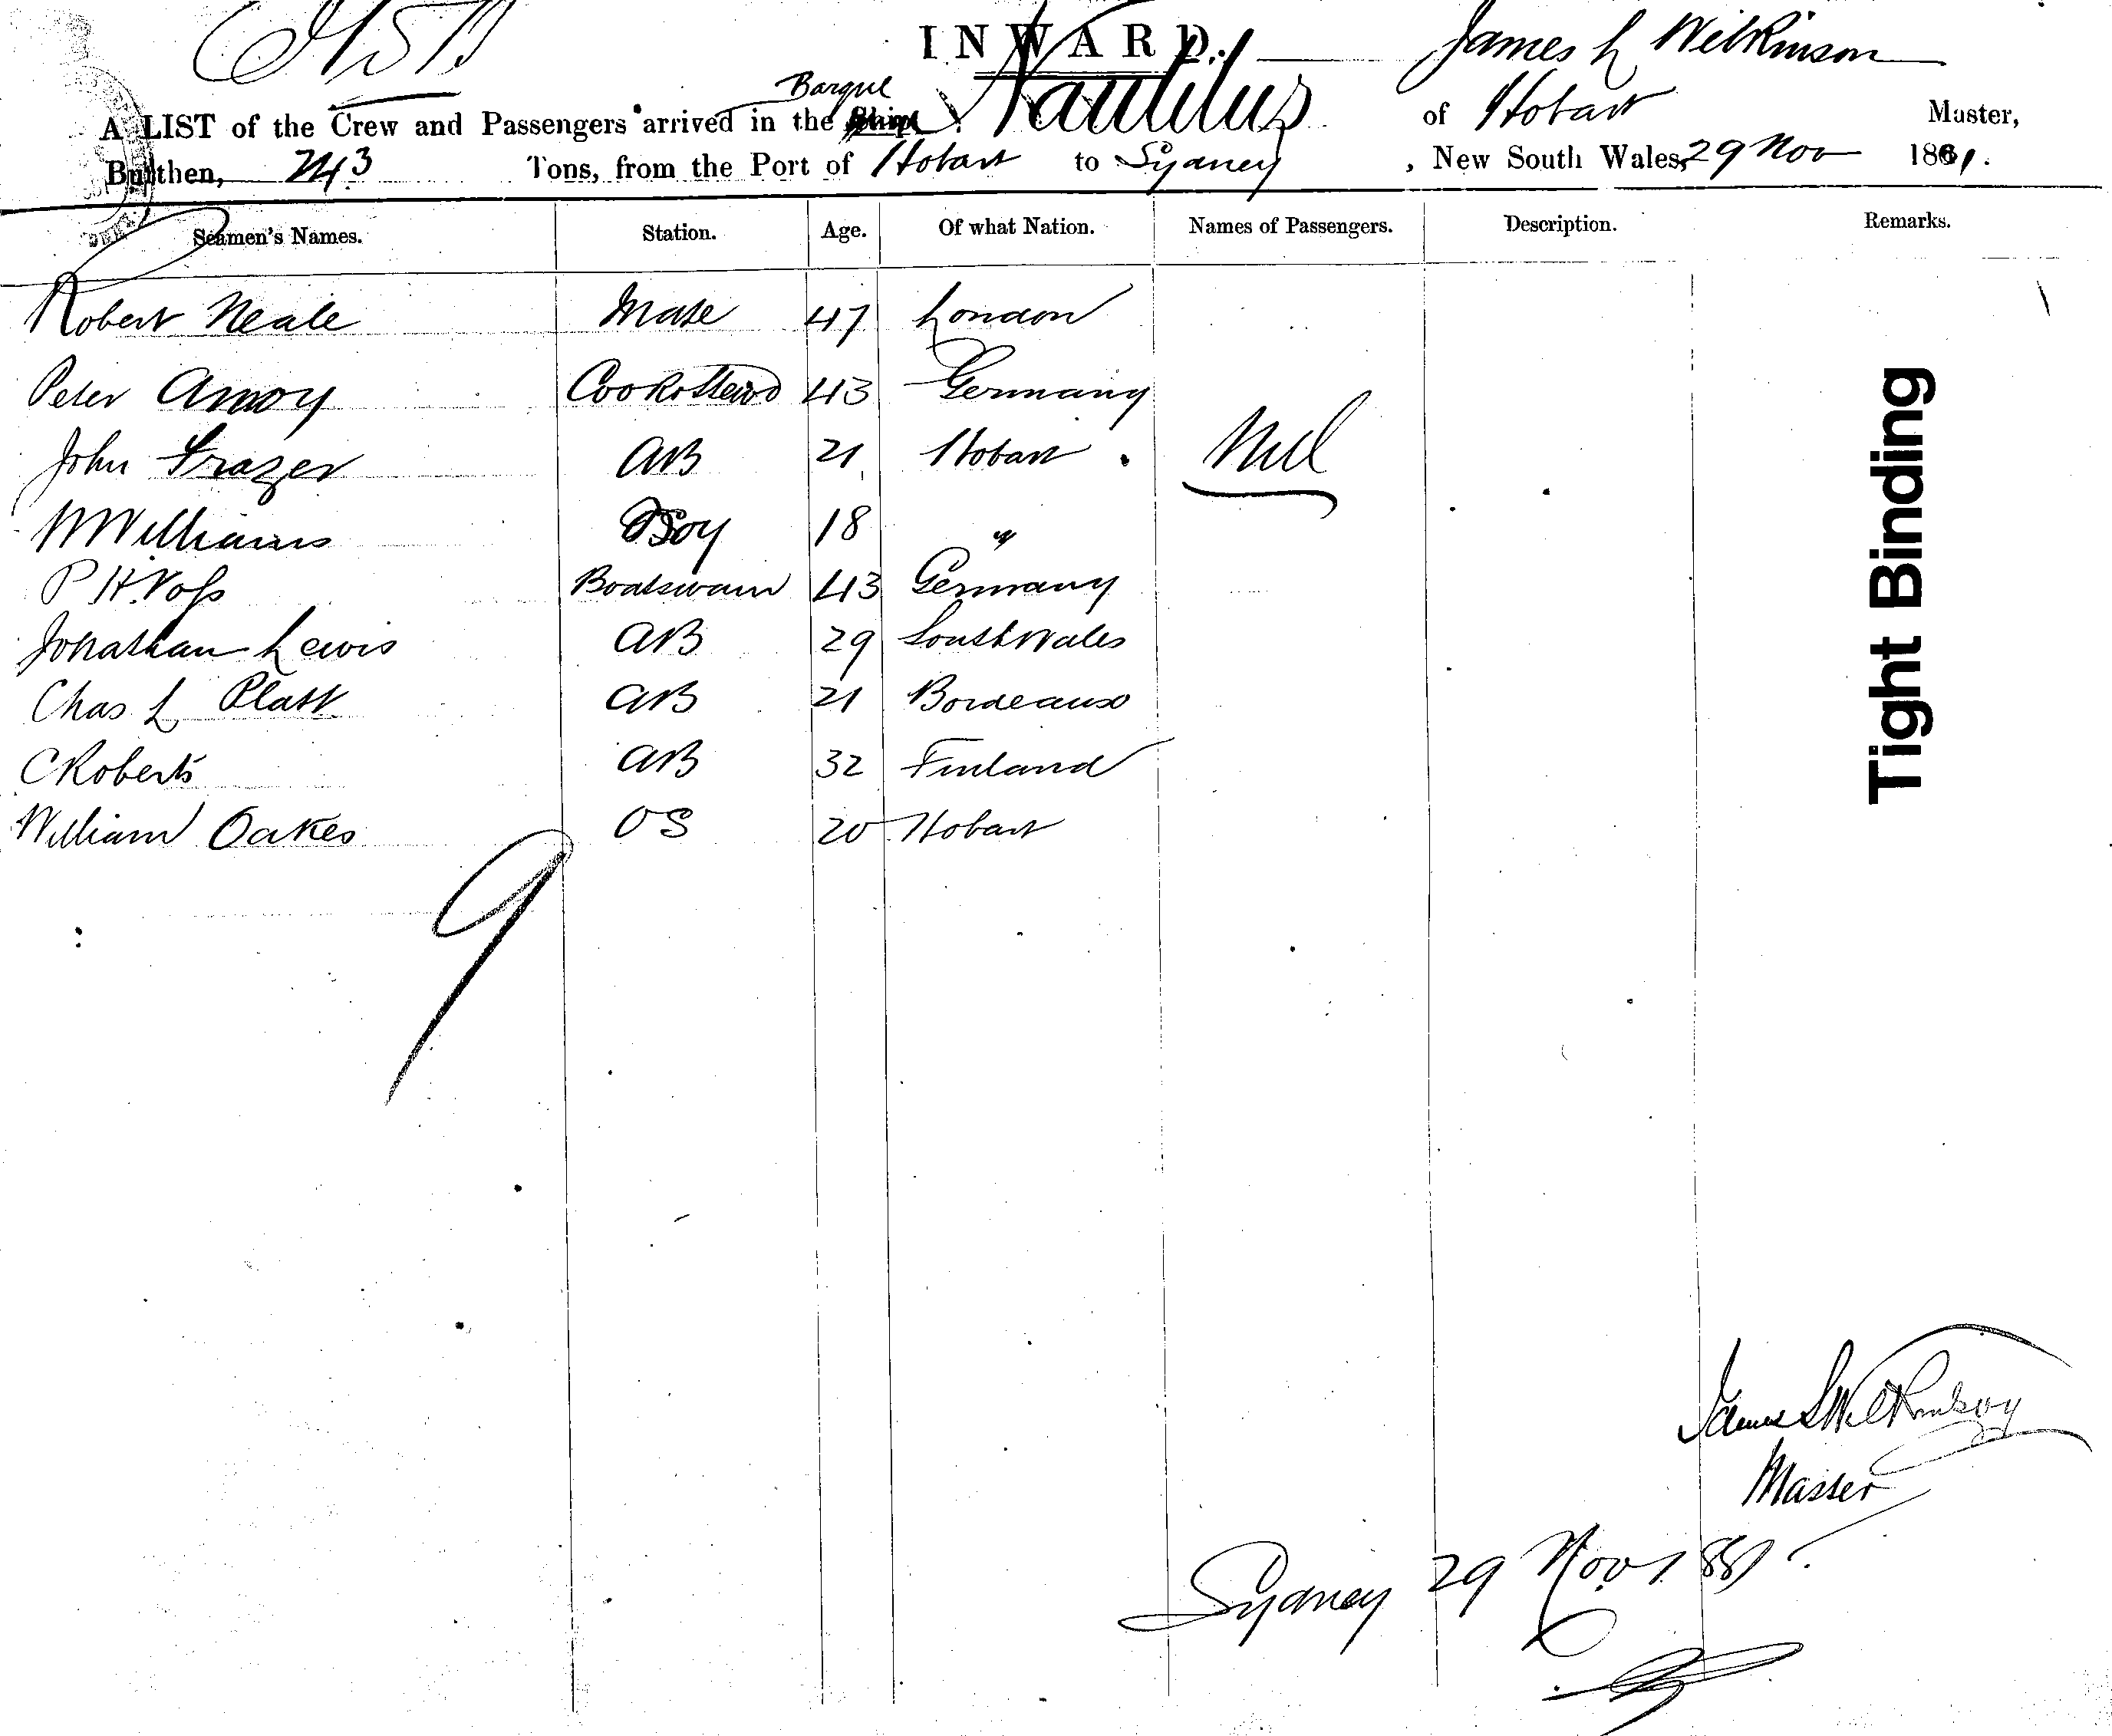 INWARD.
James L Wilkinson
Barque
A LIST of the Crew and Passengers arrived in the Ship Nautilus of Hobart Master,
Burthen, 243 Tons, from the Port of Hobart to Sydney, New South Wales, 29 Nov 1881.
Seamen's Names. Station. Age. Of what Nation. Names of Passengers. Description. Remarks.
Robert Neale Mate 47 London
Peter Amoy Cook & Steward 43 Germany
John Frazer AB 21 Hobart Nil
W Williams Boy 18 "
P H. Voss Boatswain 43 Germany
Jonathan Lewis AB 29 South Wales
Chas L Platt AB 21 Bordeaux
C Roberts AB 32 Finland
William Oakes OS 20 Hobart
9
Tight Binding
James L Wilkinson
Master
Sydney 29 Nov 1881